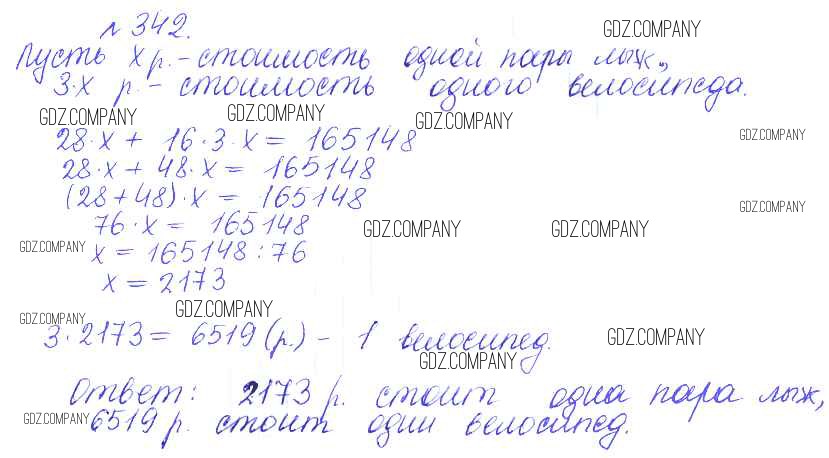 № 342.
GDZ.COMPANY
Пусть х р. - стоимость одной пары лыж,
3·х р. - стоимость одного велосипеда.
GDZ.COMPANY GDZ.COMPANY GDZ.COMPANY
28·х + 16·3·х = 165148
GDZ.COMPANY
28·х + 48·х = 165148
(28+48)·х = 165148
GDZ.COMPANY
76·х = 165148
GDZ.COMPANY GDZ.COMPANY
GDZ.COMPANY
х = 165148 : 76
х = 2173
GDZ.COMPANY
GDZ.COMPANY
3·2173 = 6519 (р.) - 1 велосипед.
GDZ.COMPANY
GDZ.COMPANY
Ответ: 2173 р. стоит одна пара лыж,
GDZ.COMPANY
6519 р. стоит один велосипед.